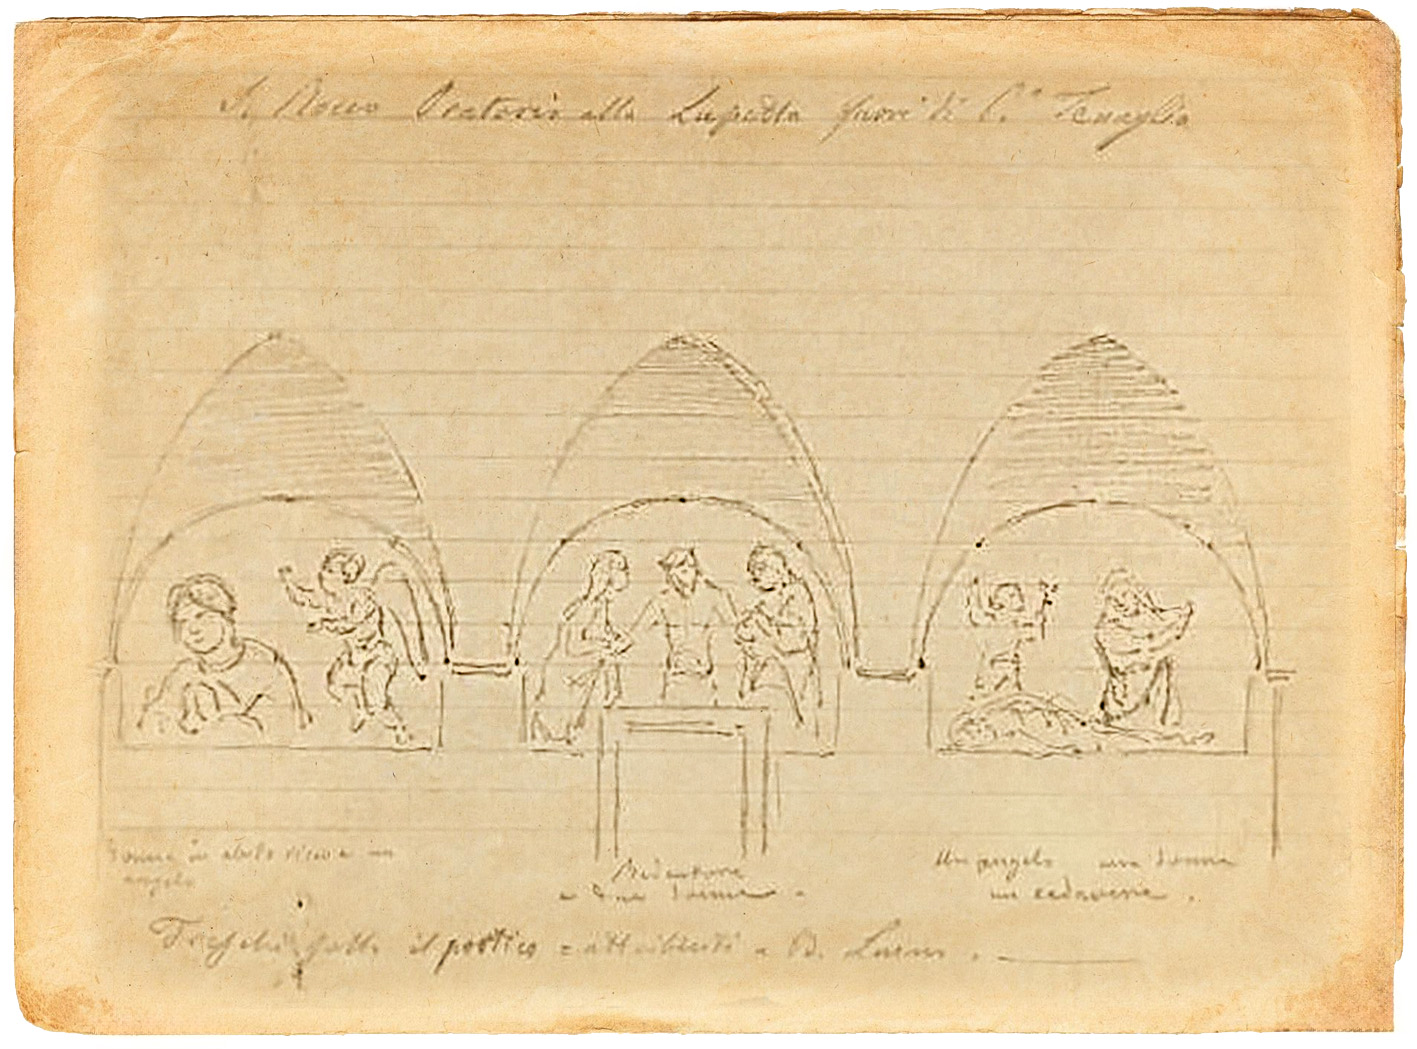 S. Rocco Oratorio alla Lupetta fuori di P.ª Tenaglia
Donna in abito ricco e un
angelo
Redentore
e due donne.
Un angelo una donna
un cadavere.
Freschi sotto il portico = attribuiti a B. Luini.